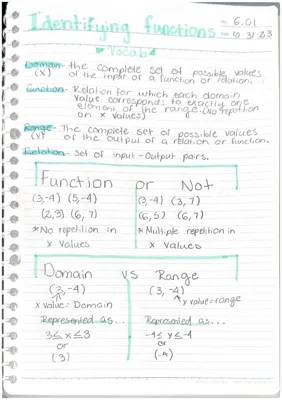 Identifying functions - 6.01
- 10/31/23
Vocab
Domain- the complete set of possible values
(X) of the input of a function or relation.
Function- Relation for which each domain
value corresponds to exactly one
element of the range. (No repetition
on x values)
Range- The complete set of possible values
(Y) of the output of a relation or function.
Relation- Set of input-output pairs.
Function or Not
(3,-4) (5,-4) (3,-4) (3,7)
(2,3) (6,7) (6,5) (6,7)
*No repetition in *Multiple repetition in
x values x values
Domain VS Range
(3,-4) (3,-4)
x value= Domain y value=range
Represented as... Represented as...
3≤x≤3 -4≤y≤-4
or or
(3) (-4)